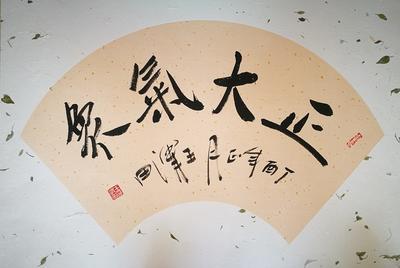 正大氣象
丁酉年正月王澤